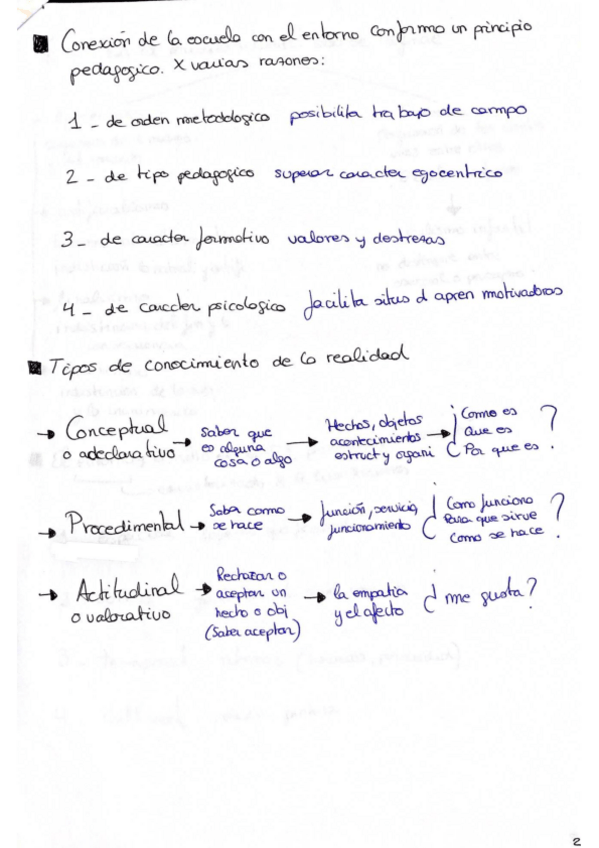 Conexión de la escuela con el entorno conforma un principio
pedagogico. X varias razones:
1 - de orden metodologico posibilita trabajo de campo
2 - de tipo pedagogico superar caracter egocentrico
3 - de caracter formativo valores y destrezas
4 - de caracter psicologico facilita situs d apren motivadoras
Tipos de conocimiento de la realidad
→ Conceptual o adeclarativo → Saber que es alguna cosa o algo → Hechos, objetos acontecimientos estruct y organi → ¿Como es Que es Por que es?
→ Procedimental → Saba como se hace → función, servicio, funcionamiento ¿Como funciona Para que sirve Como se hace?
→ Actitudinal o valorativo → Rechazar o aceptar un hecho o obj (Saber aceptar) → la empatia y el afecto ¿me gusta?
2